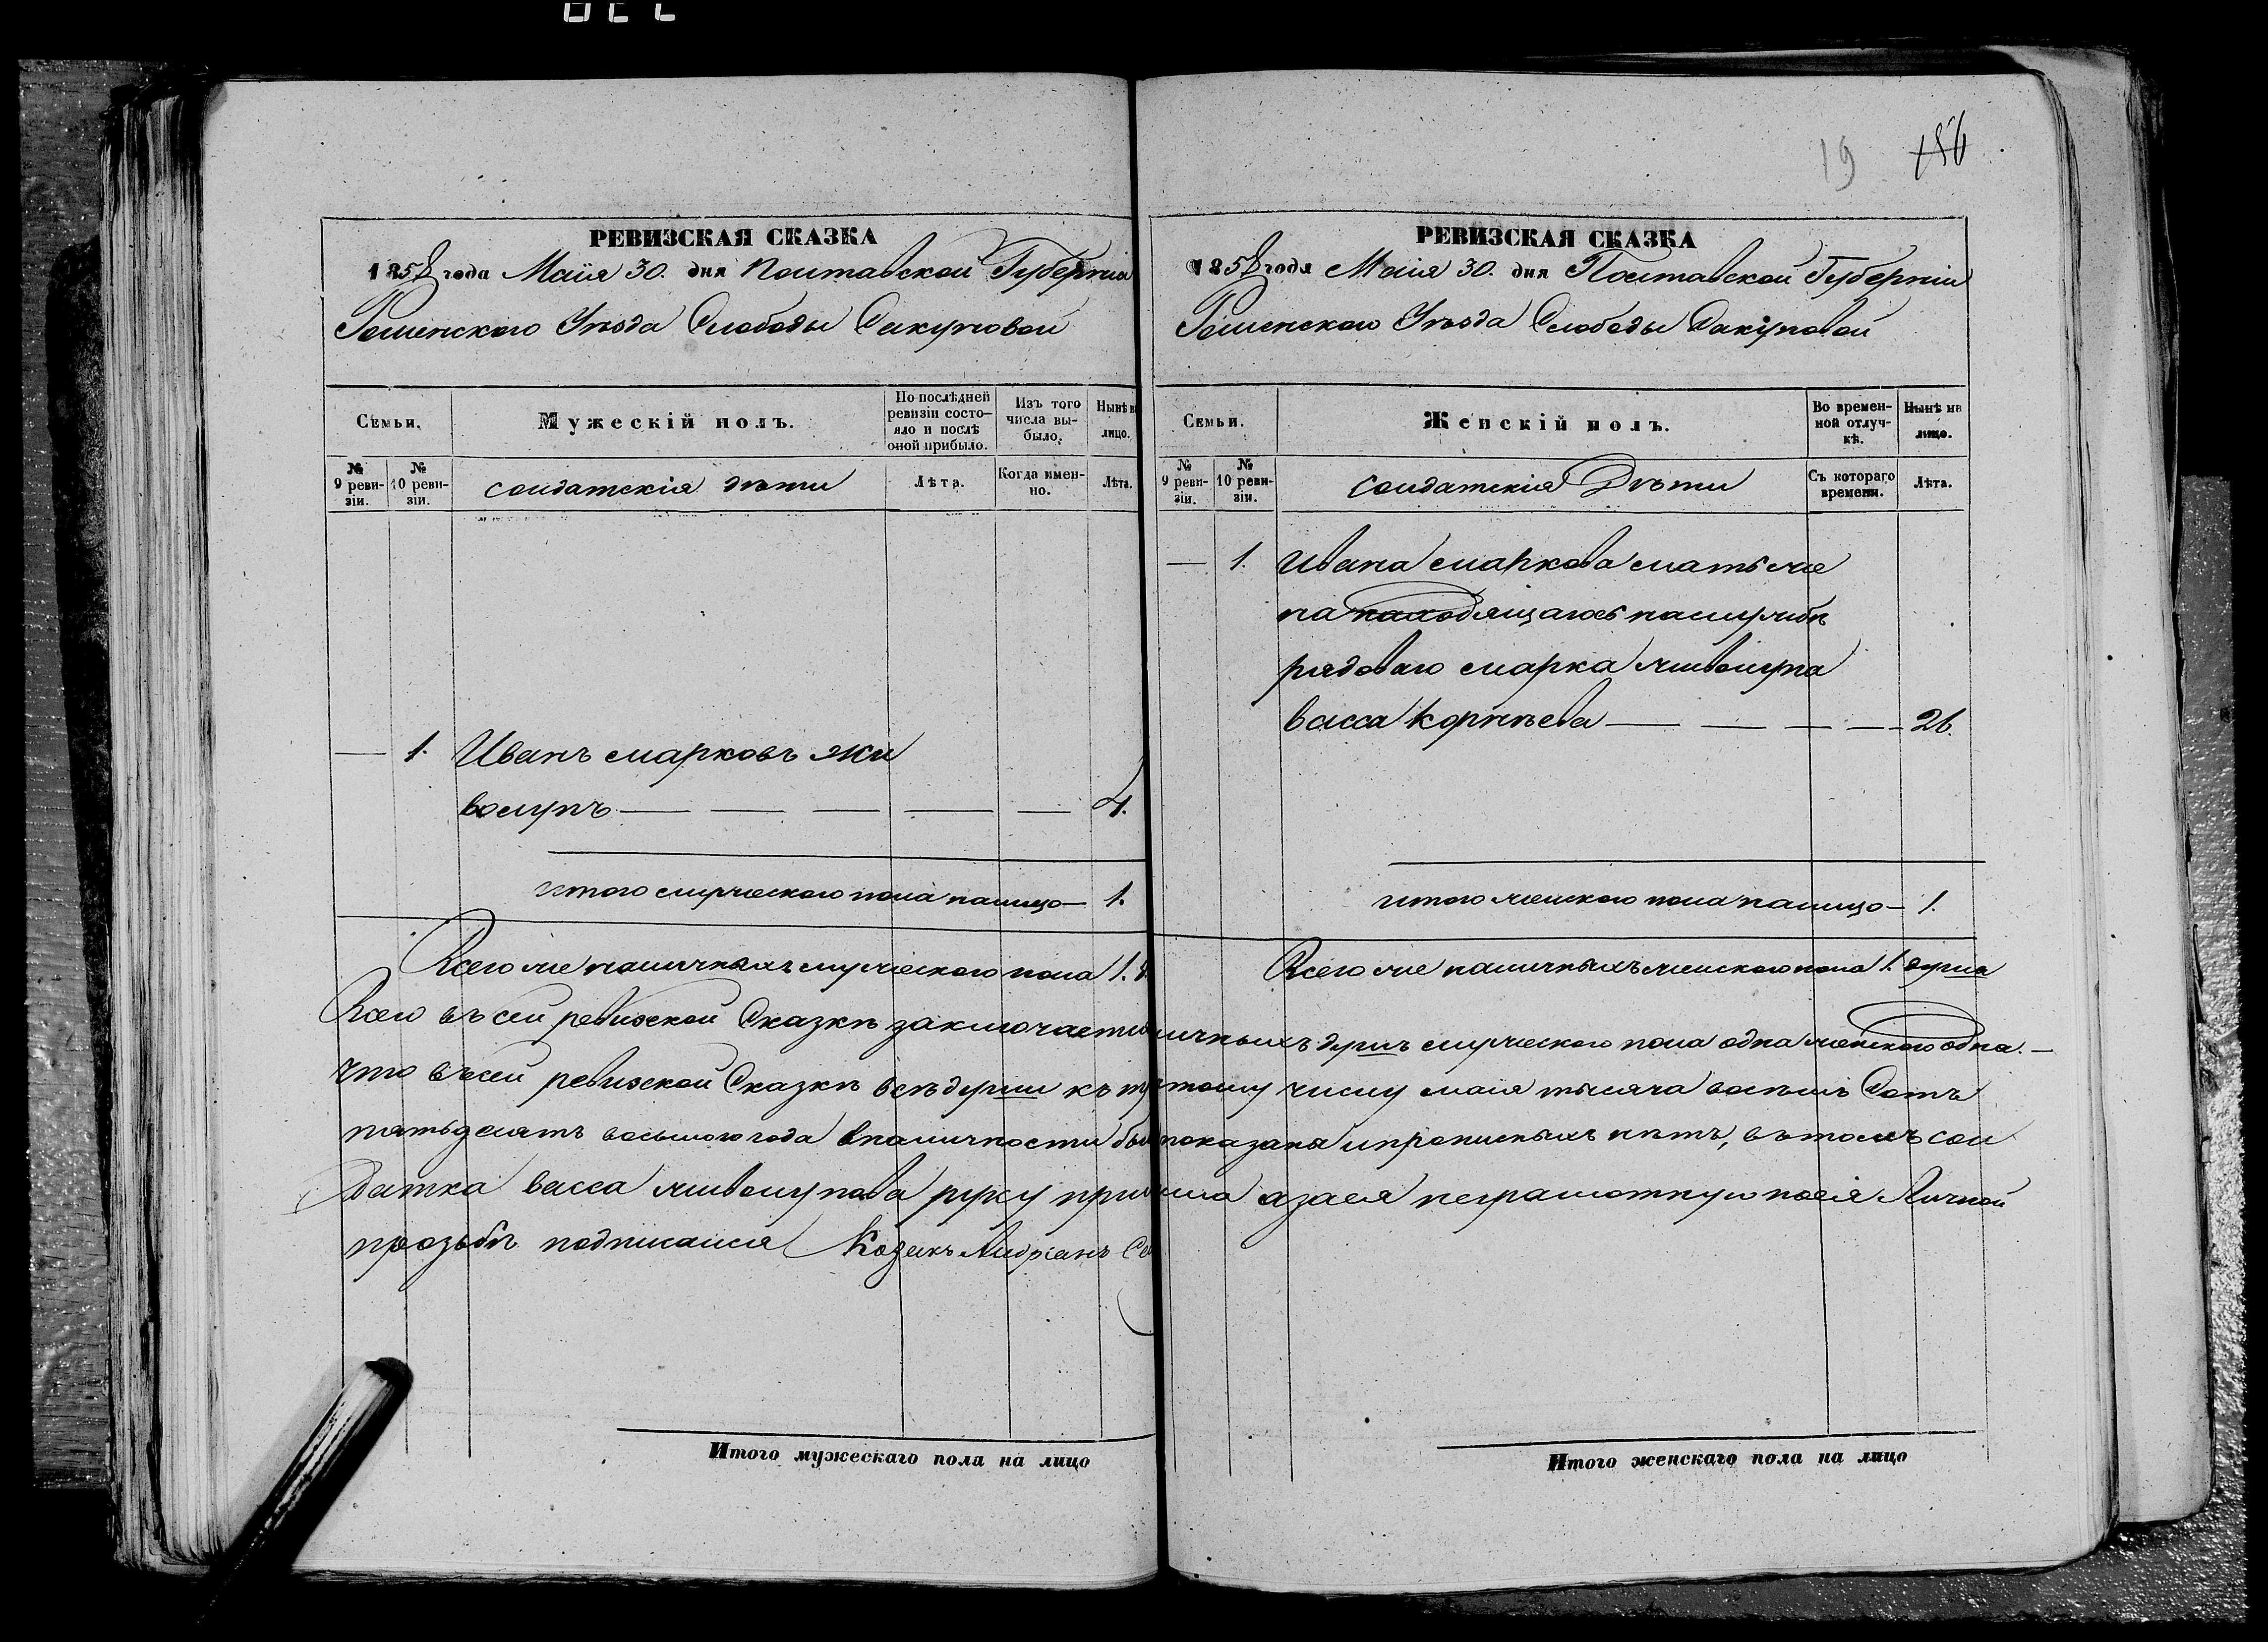 19 156
РЕВИЗСКАЯ СКАЗКА
1858 года Маія 30. дня Полтавской Губерніи
Роменского Уѣзда Слободы Сакуновой
Семьи.
Мужескій полъ.
По послѣдней ревизіи состояло и послѣ оной прибыло.
Изъ того числа выбыло.
Нынѣ на лицо.
№ 9 ревизіи.
№ 10 ревизіи.
солдатскія дѣти
Лѣта.
Когда именно.
Лѣта.
— 1. Иванъ марковъ жи
волупъ — — — — — 4.
итого мужеского пола налицо — 1.
Всего же наличныхъ мужеского пола 1.
РЕВИЗСКАЯ СКАЗКА
1858 года Маія 30. дня Полтавской Губерніи
Роменского Уѣзда Слободы Сакуновой
Семьи.
Женскій полъ.
Во временной отлучкѣ.
Нынѣ на лицо.
№ 9 ревизіи.
№ 10 ревизіи.
солдатскія Дѣти
Съ котораго времени.
Лѣта.
— 1. Ивана маркова мать же
на находящагось наслужбѣ
рядоваго марка живолупа
васса корнѣева — — — — 26.
итого женского пола налицо — 1.
Всего же наличныхъ женского пола 1. душа
Всего въ сей ревизской Сказкѣ заключается личныхъ душъ мужеского пола одна женского одна. —
Что въ сей ревизской Сказкѣ всѣ души къ тому числу маія тысяча восемь Сотъ
пятьдесятъ восьмого года вналичности показана ипрописныхъ нѣтъ, въ томъ сол
датка васса живолупова руку азаея неграмотную поея Личной
прозьбѣ подписался Козакъ Андріанъ
Итого мужескаго пола на лицо
Итого женскаго пола на лицо